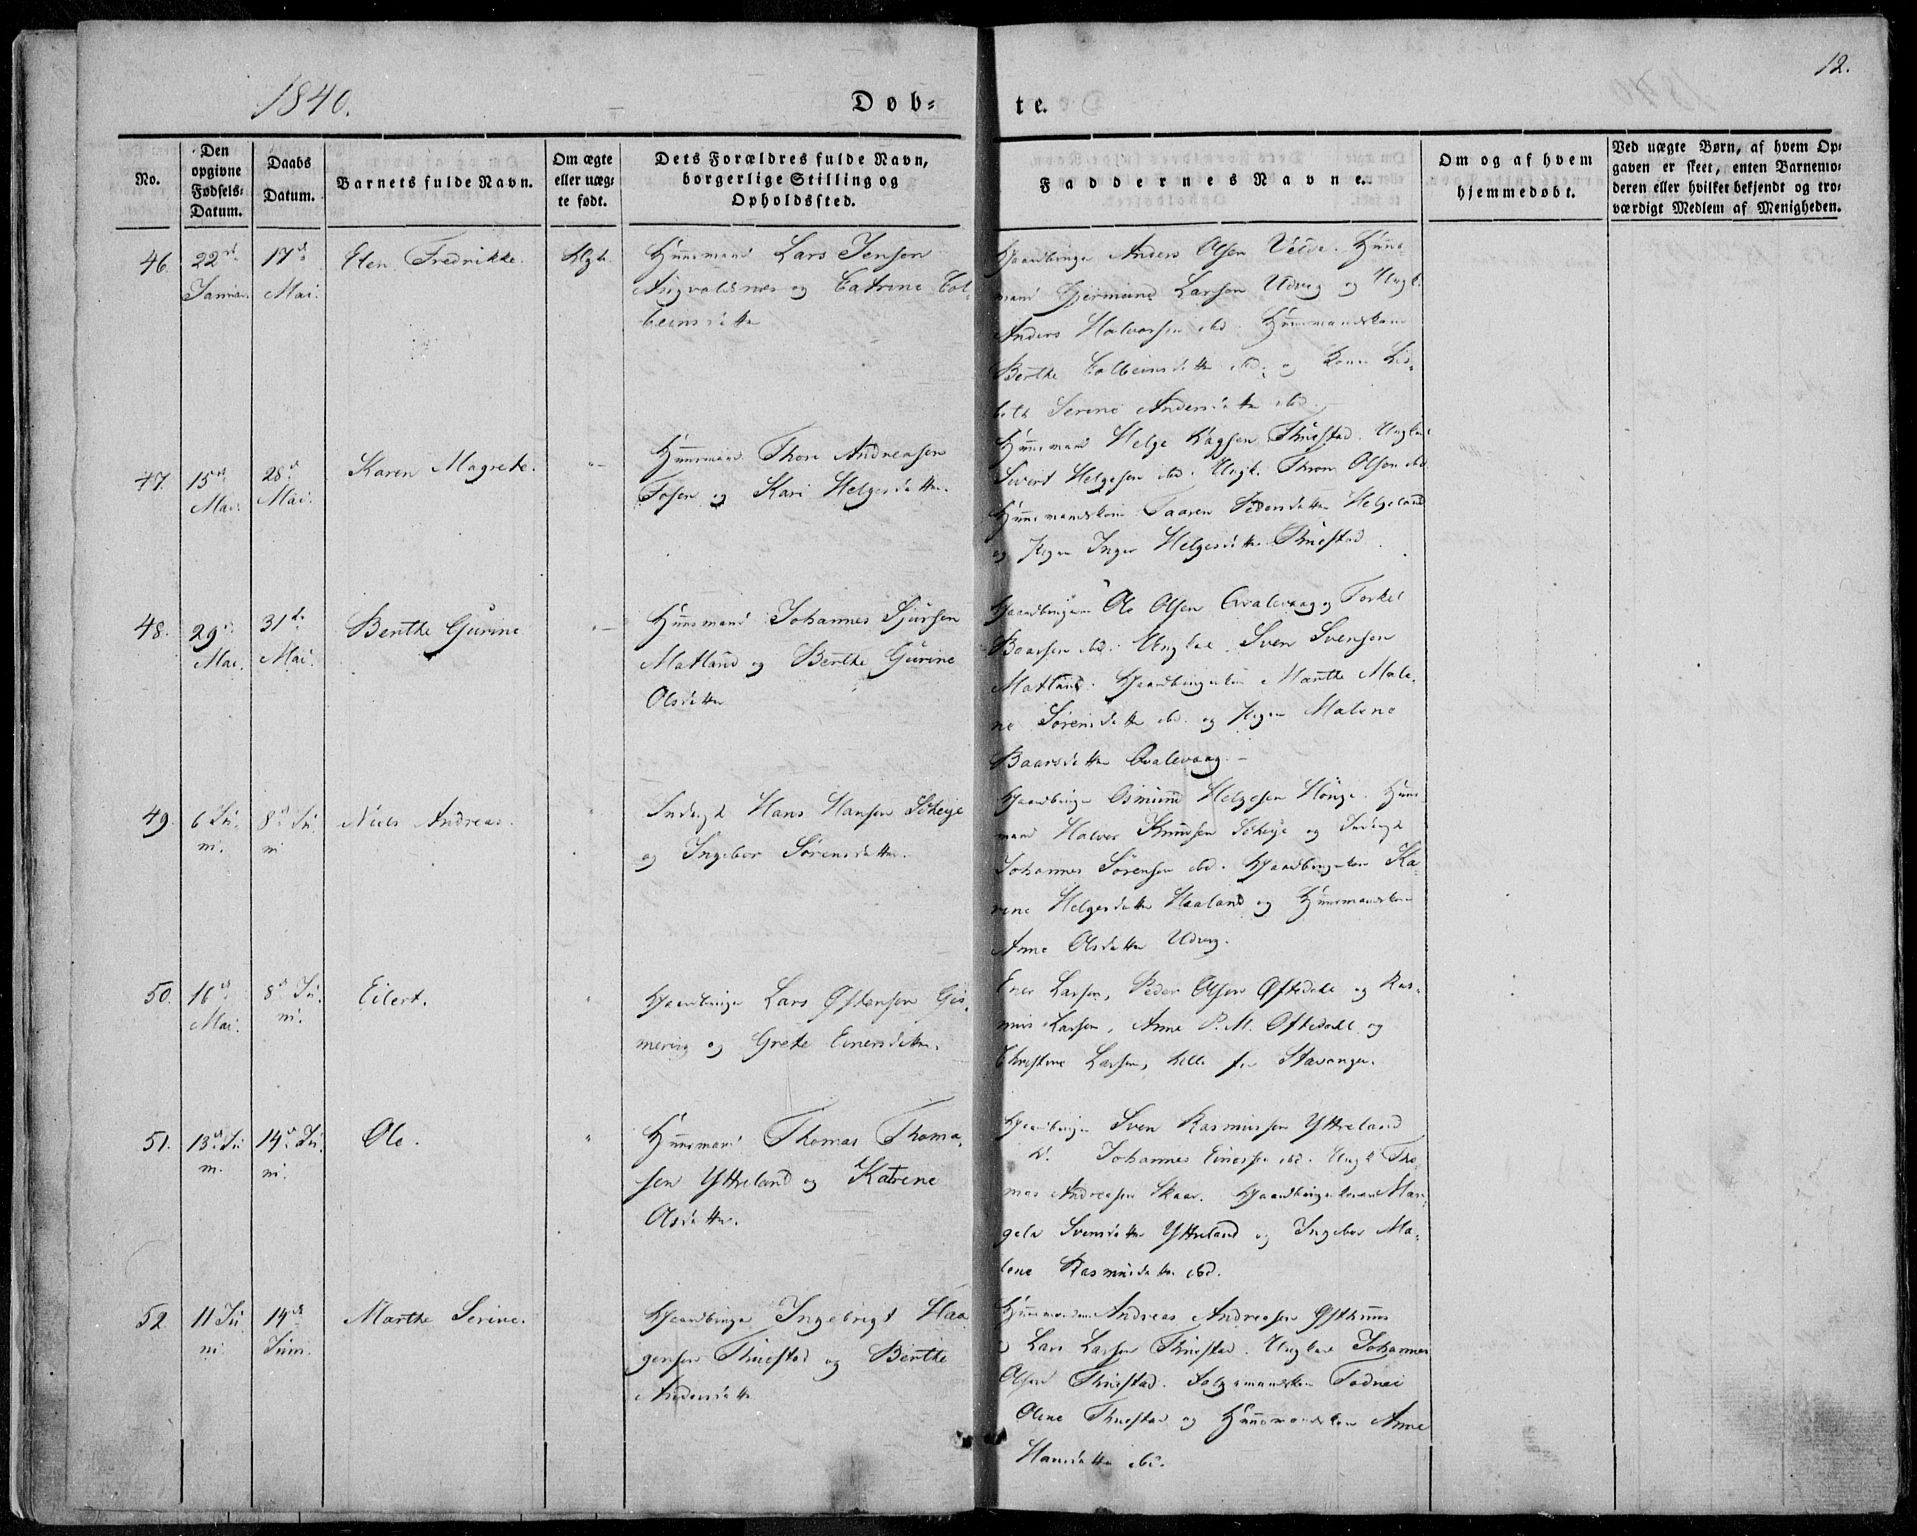 1840.
Døb-
te.
12.
No.
Den
opgivne
Fødsels-
Datum.
Daabs
Datum.
Barnets fulde Navn.
Om ægte
eller uæg-
te født.
Dets Forældres fulde Navn,
borgerlige Stilling og
Opholdssted.
Faddernes Navne.
Om og af hvem
hjemmedøbt.
Ved uægte Børn, af hvem Op-
gaven er skeet, enten Barnemo-
deren eller hvilket bekjendt og tro-
værdigt Medlem af Menigheden.
46.
22
Januar.
17
Mai.
Elen Fredrikke.
Huusmand Lars Jensen
Augvaldsnes og Catrine Tol-
beinsdatter
Gaardbruger Anders Olsen Huus-
mand Larsen Udveg og Ungk.
Anders Halvorsen ibd. Huusmandskone
Berthe Tolbeinsdatter ibd. og Kone Lis-
beth Serine Andersdatter ibd.
47.
15
Mai.
28
Mai.
Karen Magrete.
Huusmand Thore Andreasen
Fosen og Kari Helgesdatter.
Huusmand Helge Thuestad. Ungkarl
Sivert Helgesen ibd. Ungk. Olsen ibd
Huusmandskone Taaren Pedersdatter Helgeland
og Pigen Inger Helgesdatter Thuestad.
48.
29
Mai.
31
Mai.
Berthe Gurine
Huusmand Johannes Sjursen
Matland og Berthe Gurine
Olsdatter
Gaardbrugerne Ole Olsen Qvalevaag og Torkel
Baarsen ibd. Ungkarl Sven Svensen
Matland. Gaardbrugerkone Marthe Male-
ne Sørensdatter ibd. og Pigen Malene
Baarsdatter Qvalevaag.
49.
6 Ju-
ni.
8 Ju-
ni
Niels Andreas.
Inderst Hans Hansen Søkeye
og Ingebor Sørensdatter.
Gaardbruger Osmund Helgesen Houge. Huus-
mand Halvor Knudsen Søkeye og Inderst
Johannes Sørensen ibd. Gaardbrugerkone Ka-
rine Helgesdatter Haaland og Huusmandskone
Anne Olsdatter Udveg.
50.
16
Mai.
8 Ju-
ni.
Eilert.
Gaardbruger Lars Øftensen Gis-
mervig og Grete Einersdatter.
Ener Larsen, Peder Olsen Øftedale og Ras-
mus Larsen, Anne P. M. Oftedahl og
Christine Larsen, alle fra Stavanger.
51.
13 Ju-
ni.
14 Ju-
ni.
Ole.
Huusmand Thomas Thoma-
sen Yttreland og Katrine
Olsdatter.
Gaardbruger Sven Rasmussen Yttreland
Johannes Einersen ibd. Ungk. Tho-
mas Andreasen Skaar. Gaardbrugerkonerne Mar-
gele Svensdatter Yttreland og Ingebor Ma-
lene Rasmusdatter ibd.
52.
11 Ju-
ni.
14
Juni.
Marthe Serine.
Gaardbruger Ingebrigt Haa-
gensen Thuestad og Berthe
Andersdatter
Huusmændene Andreas Andreasen Østhuus
og Lars Larsen Thuestad. Ungkarl Johannes
Olsen Thuestad. Todnei
Olene Thuestad og Huusmandskone Anne
Hansdatter ibd.